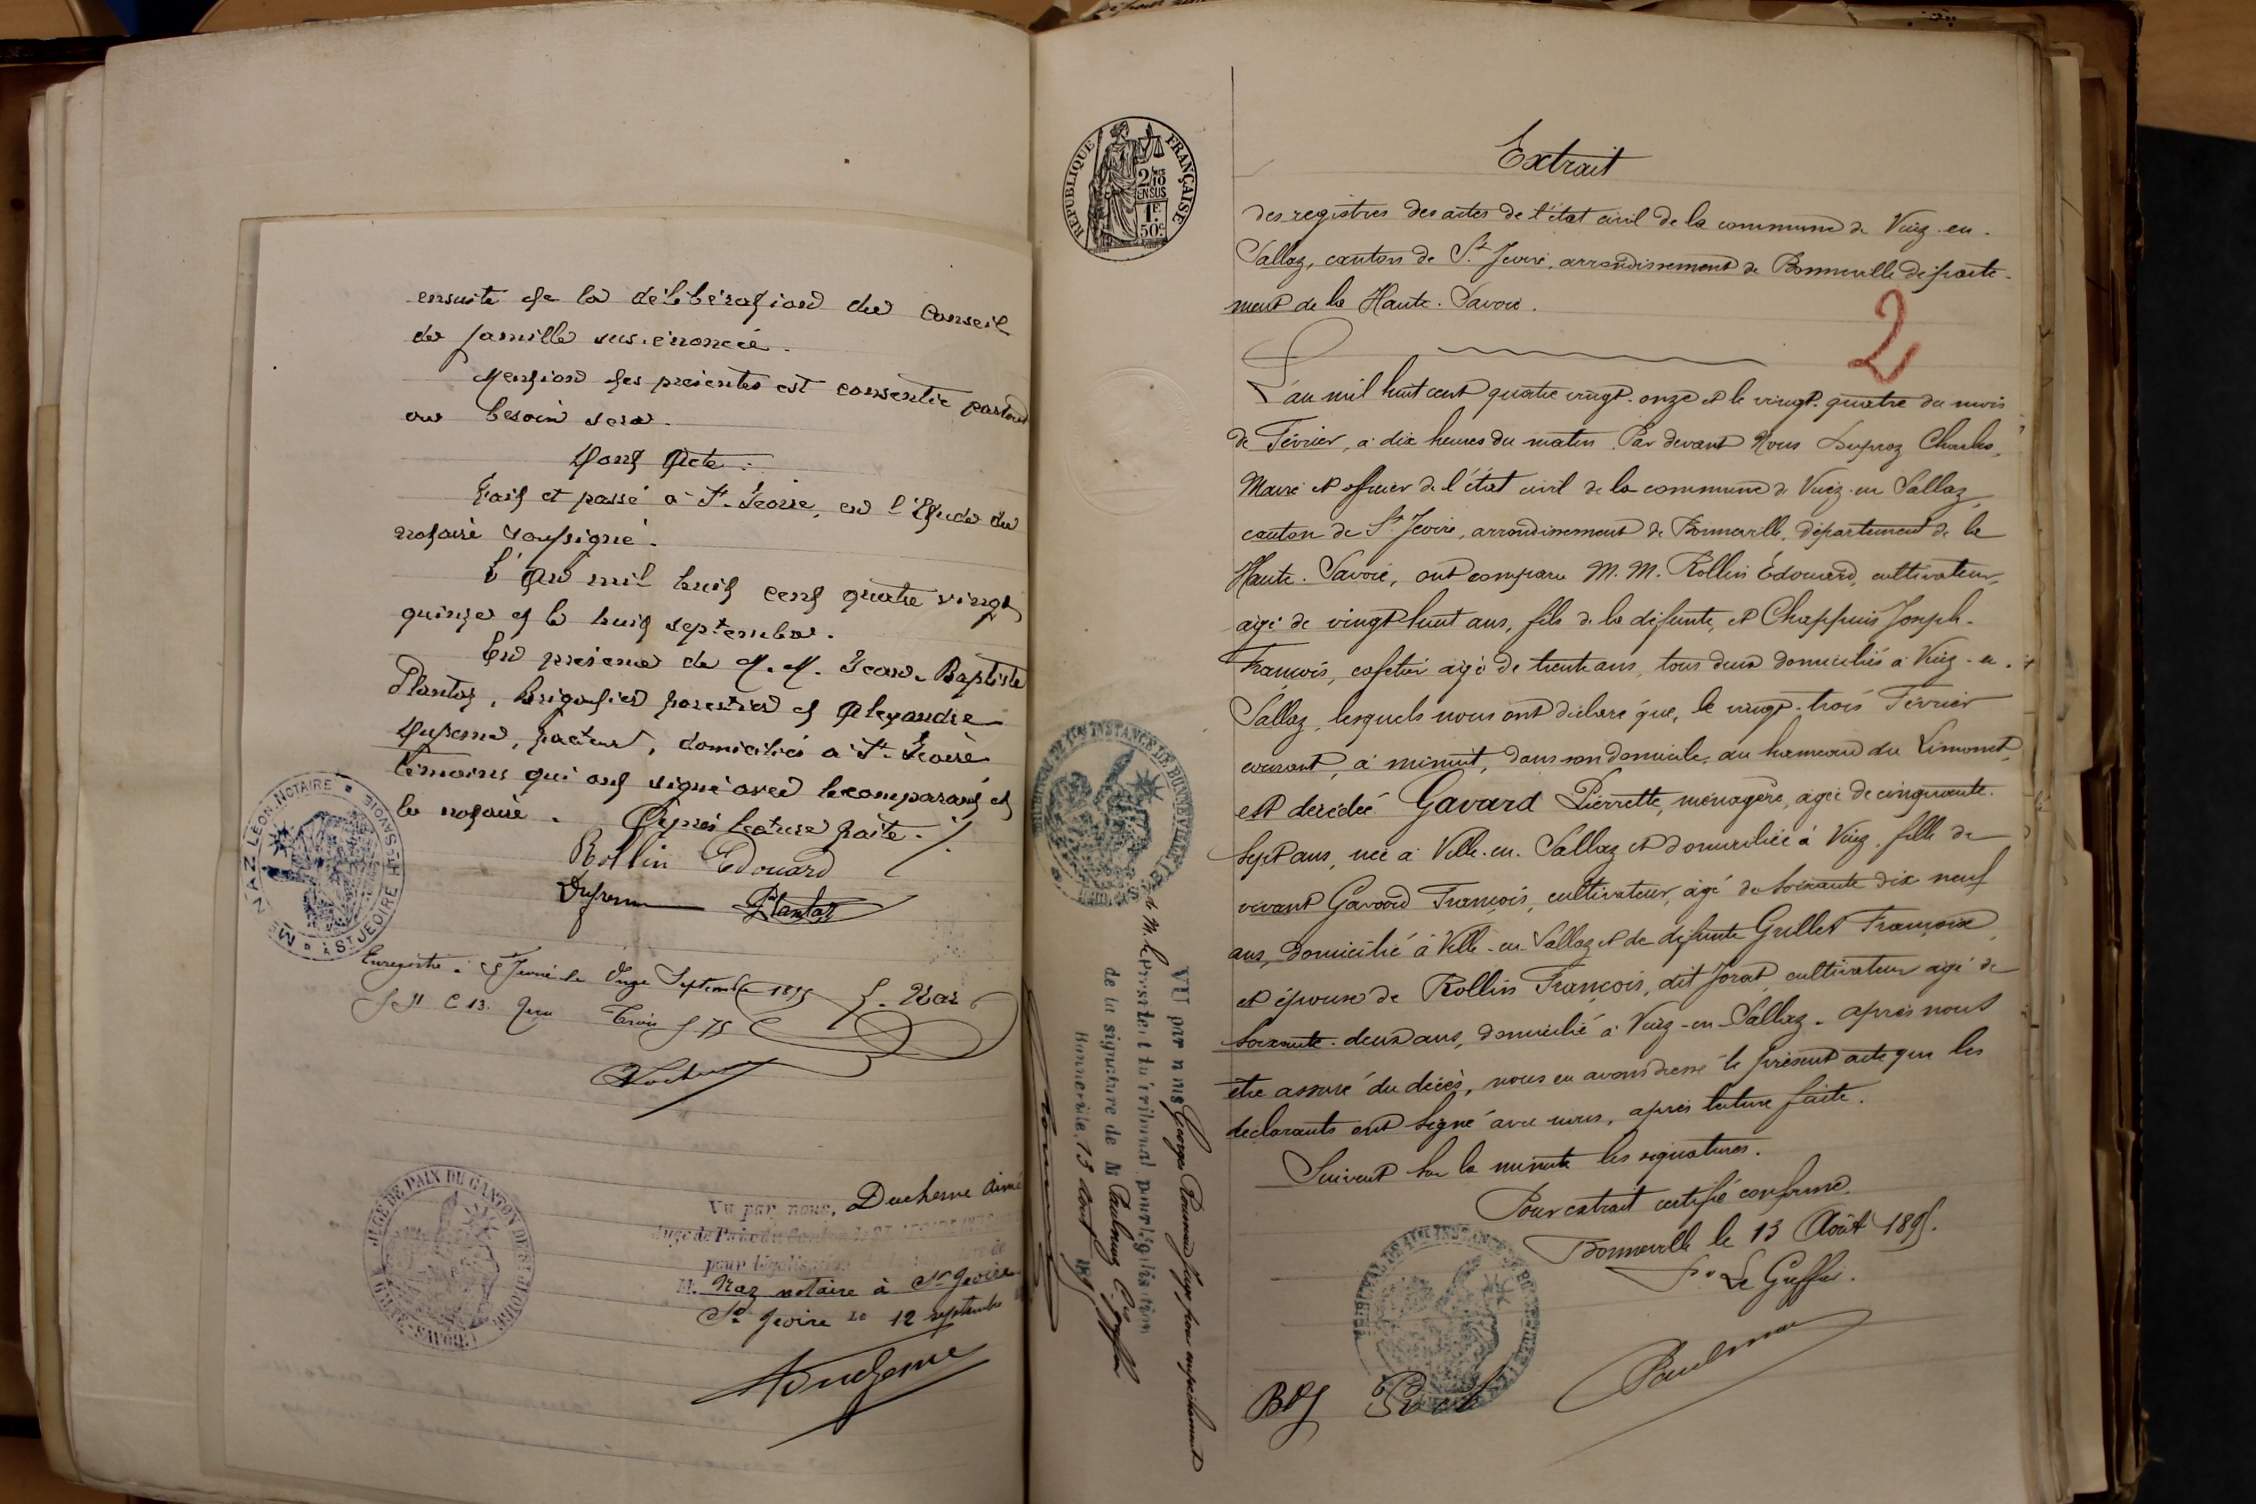 ensuite de la délibération du Conseil
de famille sus-énoncée.
Mention des présentes est consentie partout
où besoin sera.
Dont Acte.
Fait et passé à St-Jeoire, en l'Etude du
notaire soussigné.
L'An mil huit cent quatre vingt
quinze et le huit septembre.
En présence de M.M. Jean-Baptiste
Plantaz, brigadier forestier et Alexandre
Dufresne, facteur, domiciliés à St-Jeoire
témoins qui ont signé avec le comparant et
le notaire. Après lecture faite.
Rollin Edouard
Dufresne Plantaz
Enregistré à St Jeoire le Onze Septembre 1895
f 91 C 13. Reçu Trois f 75
L. Naz
ME NAZ LÉON, NOTAIRE
À ST JEOIRE HTE SAVOIE
JUGE DE PAIX DU CANTON DE ST JEOIRE
Vu par nous, Duchesne Aimé
Juge de Paix du Canton de ST JEOIRE
pour légalisation
M. Naz notaire à St Jeoire
St Jeoire le 12 septembre
Duchesne
REPUBLIQUE FRANÇAISE
2/10 EN SUS
1F 50C
TRIBUNAL DE 1RE INSTANCE DE BONNEVILLE
VU par nous Georges Juge pour empêchement
de M. le président du tribunal pour légalisation
de la signature de M Paulmaz C. Greffier
Bonneville, 13 Août 1895
Extrait
des registres des actes de l'état civil de la commune de Viuz-en-
Sallaz, canton de St Jeoire, arrondissement de Bonneville départe-
ment de la Haute-Savoie.
2
L'an mil huit cent quatre vingt-onze et le vingt-quatre du mois
de Février, à dix heures du matin. Par devant Nous Duproz Charles,
Maire et officier de l'état civil de la commune de Viuz-en Sallaz,
canton de St Jeoire, arrondissement de Bonneville, département de la
Haute-Savoie, ont comparu M.M. Rollin Édouard, cultivateur,
âgé de vingt huit ans, fils de la défunte, et Chappuis Joseph-
François, cafetier âgé de trente ans, tous deux domiciliés à Viuz-en-
Sallaz, lesquels nous ont déclaré que, le vingt-trois Février
courant, à minuit, dans son domicile, au hameau du Limonet,
est décédée Gavard Pierrette, ménagère, âgée de cinquante-
sept ans, née à Ville-en-Sallaz et domiciliée à Viuz, fille de
vivant Gavard François, cultivateur, âgé de soixante dix neuf
ans, domicilié à Ville-en-Sallaz et de défunte Grillet Françoise,
et épouse de Rollin François, dit Jorat, cultivateur âgé de
soixante-deux ans, domicilié à Viuz-en-Sallaz. Après nous
être assuré du décès, nous en avons dressé le présent acte que les
déclarants ont signé avec nous, après lecture faite.
Suivent sur la minute les signatures.
Pour extrait certifié conforme.
Bonneville le 13 Août 1895.
Pr Le Greffier.